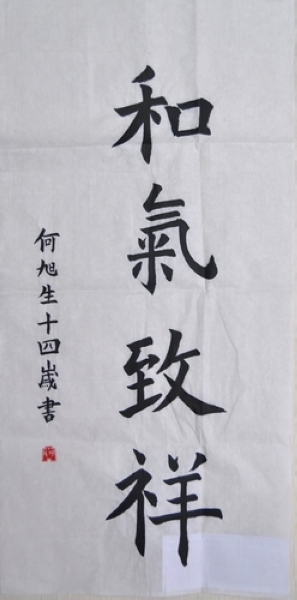 和氣致祥
何旭生十四歲書